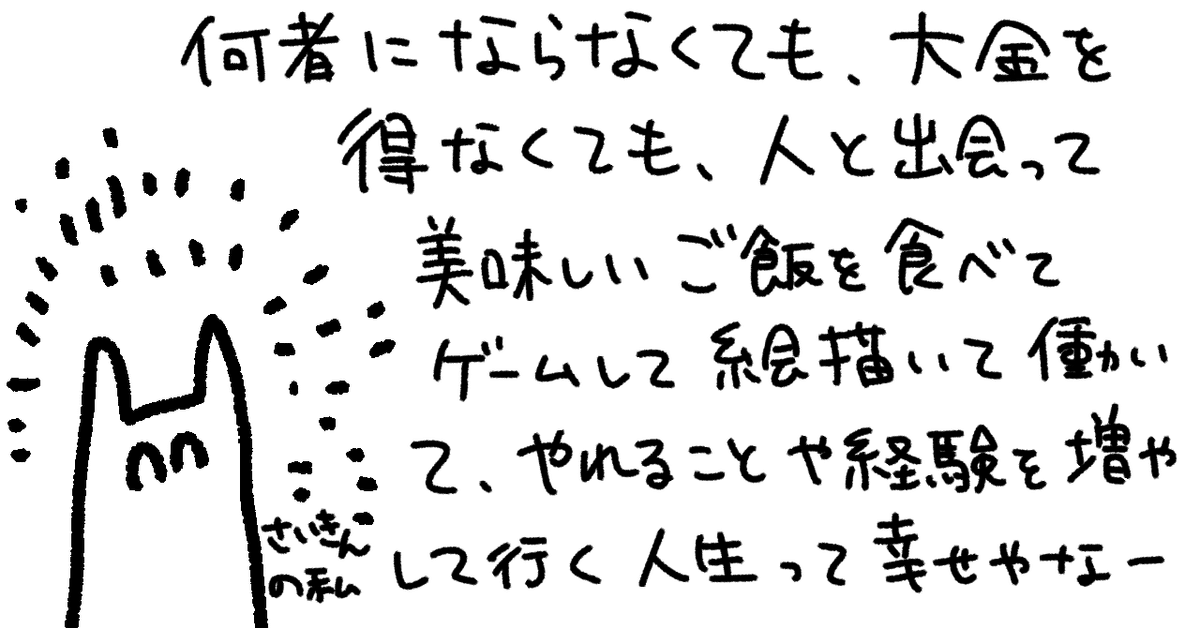 何者にならなくても、大金を
得なくても、人と出会って
美味しいご飯を食べて
ゲームして絵描いて働い
て、やれることや経験を増や
して行く人生って幸せやなー
さいきん
の私